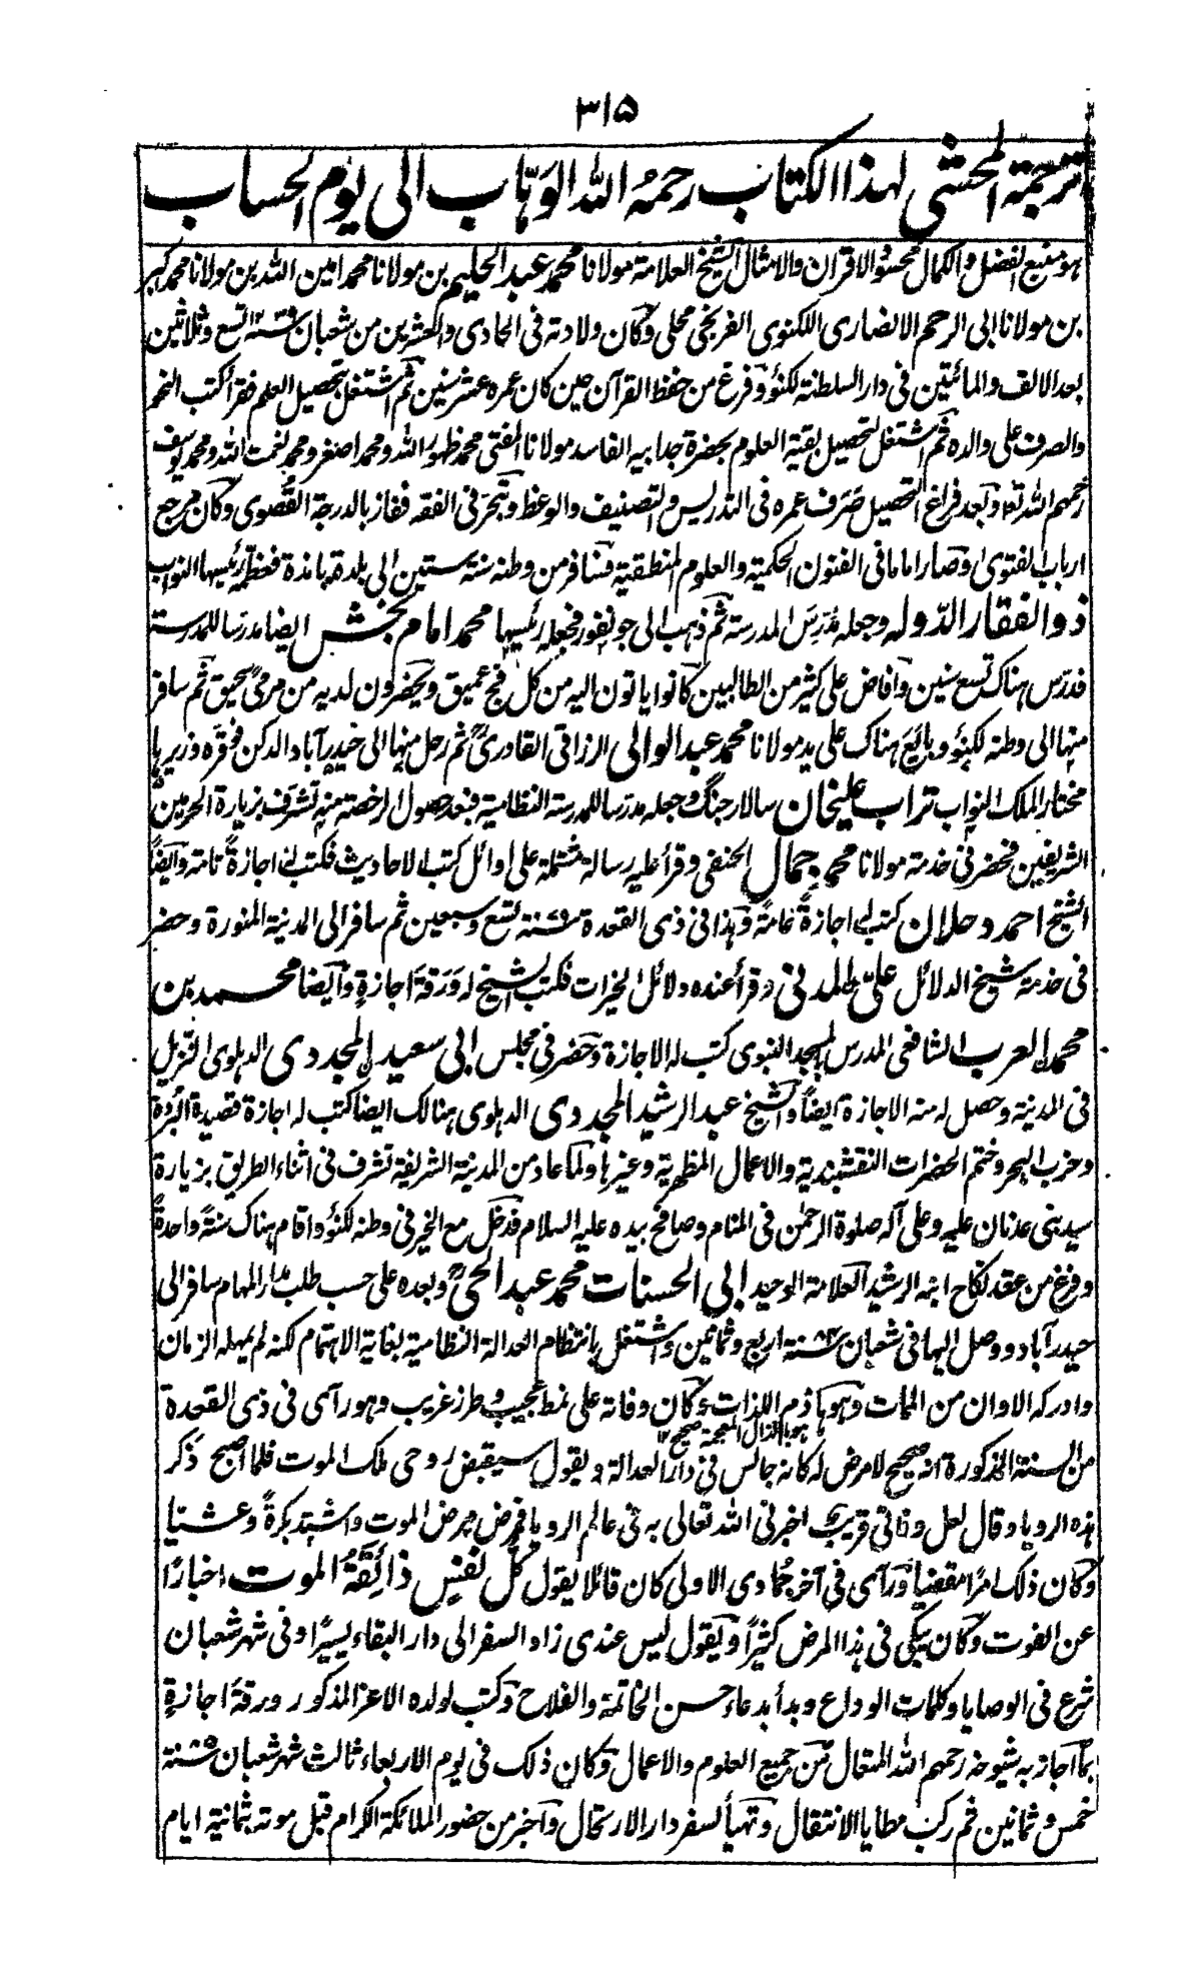 ٣١٥
ترجمة المحشي لهذا الكتاب رحمه الله الوهّاب الى يوم الحساب
هو منبع الفضل والكمال محسود الاقران والامثال الشيخ العلامة مولانا محمد عبد الحليم بن مولانا محمد امين الله بن مولانا محمد اكبر
بن مولانا ابى الرحم الانصارى اللكنوى الفرنجى محلى وكان ولادته فى الحادى والعشرين من شعبان سنة تسع وثلاثين
بعد الالف والمائتين فى دار السلطنة لكنؤ وفرغ من حفظ القرآن حين كان عمره عشر سنين ثم اشتغل بتحصيل العلم فقرأ كتب النحو
والصرف على والده ثم اشتغل لتحصيل بقية العلوم بحضرة جد ابيه الفاسد مولانا المفتى محمد ظهور الله ومحمد اصغر ومحمد نعمت الله ومحمد يوسف
رحمهم الله تعه وبعد فراغ التحصيل صرف عمره فى التدريس والتصنيف والوعظ وتبحر فى الفقه ففاز بالدرجة القصوى وكان مرجع
ارباب الفتوى وصار اماما فى الفنون الحكمية والعلوم المنطقية فسافر من وطنه سنه ستين الى بلدة باندة فعظمه رئيسها النواب
ذو الفقار الدوله وجعله مدرس المدرسة ثم ذهب الى جونفور فجعله رئيسها محمد امام بخش ايضا مدرسا للمدرسة
فدرس هناك تسع سنين وافاض على كثير من الطالبين كانوا ياتون اليه من كل فج عميق ويحضرون لديه من مرمى سحيق ثم سافر
منها الى وطنه لكنؤ وبايع هناك على يد مولانا محمد عبد الوالى الرزاقى القادرى ثم رحل منها الى حيدرآباد الدكن فوقره وزيرها
مختار الملك النواب تراب عليخان سالار جنگ وجعله مدرسا للمدرسة النظامية فبعد حصول الرخصة منه تشرف بزيارة الحرمين
الشريفين فحضر فى خدمة مولانا محمد جمال الحنفى وقرأ عليه رسالة مشتملة على اوائل كتب الاحاديث فكتب له اجازة تامة وايضًا
الشيخ احمد دحلان كتب له اجازةً عامةً وهذا فى ذى القعدة سنة تسع وسبعين ثم سافر الى المدينة المنورة وحضر
فى خدمة شيخ الدلائل علىّ المدنى وقرأ عنده دلائل الخيرات فكتب الشيخ له ورقة اجازةٍ وايضا محمد بن
محمد العرب الشافعى المدرس بالمسجد النبوى كتب له الاجازة وحضر فى مجلس ابى سعيد المجددى الدهلوى النزيل
فى المدينة وحصل له منه الاجازة ايضًا والشيخ عبد الرشيد المجددى الدهلوى هنالك ايضا كتب له اجازة قصيدة البردة
وحزب البحر وختم الحضرات النقشبندية والاعمال المظهرية وغيرها ولما عاد من المدينة الشريفة تشرف فى اثناء الطريق بزيارة
سيد بنى عدنان عليه وعلى آله صلوة الرحمٰن فى المنام وصافح بيده عليه السلام فدخل مع الخير فى وطنه لكنؤ واقام هناك سنةً واحدةً
وفرغ من عقد نكاح ابنه الرشيد العلامة الوحيد ابى الحسنات محمد عبد الحىّ وبعده على حسب طلب مدار المهام سافر الى
حيدرآباد ووصل اليها فى شعبان سنة ٨٤ اربع وثمانين واشتغل بانتظام العدالة النظامية بغاية الاهتمام لكنه لم يمهله الزمان
وادركه الاوان من الممات وهو هاذم اللذات وكان وفاته على نمط عجيب وطرز غريب وهو رآى فى ذى القعدة
هو بالذال المعجمة صحيح ١٢
من السنة المذكورة انه صحيح لا مرض له كانه جالس فى دار العدالة ويقول سيقبض روحى ملك الموت فلما اصبح ذكر
هذه الرويا وقال لعل وفاتى قريب اخبرنى الله تعالى به فى عالم الرويا فمرض مرض الموت واشتد بكرةً وعشيا
وكان ذلك امرًا مقضيا ورآى فى آخر جمادى الاولى كان قائلا يقول كل نفسٍ ذائقة الموت اخبارًا
عن الفوت وكان يبكى فى هذا المرض كثيرًا ويقول ليس عندى زاد السفر الى دار البقاء يسيرًا وفى شهر شعبان
شرع فى الوصايا وكلمات الوداع وبدأ بدعاء حسن الخاتمة والفلاح وكتب لولده الاعز المذكور ورقة اجازةٍ
بما اجاز به شيوخه رحمهم الله المتعال من جميع العلوم والاعمال وكان ذلك فى يوم الاربعاء ثالث شهر شعبان سنة ٨٥
خمس وثمانين ثم ركب مطايا الانتقال وتهيأ لسفر دار الارتحال واخبر من حضور الملائكة الكرام قبل موته بثمانية ايام